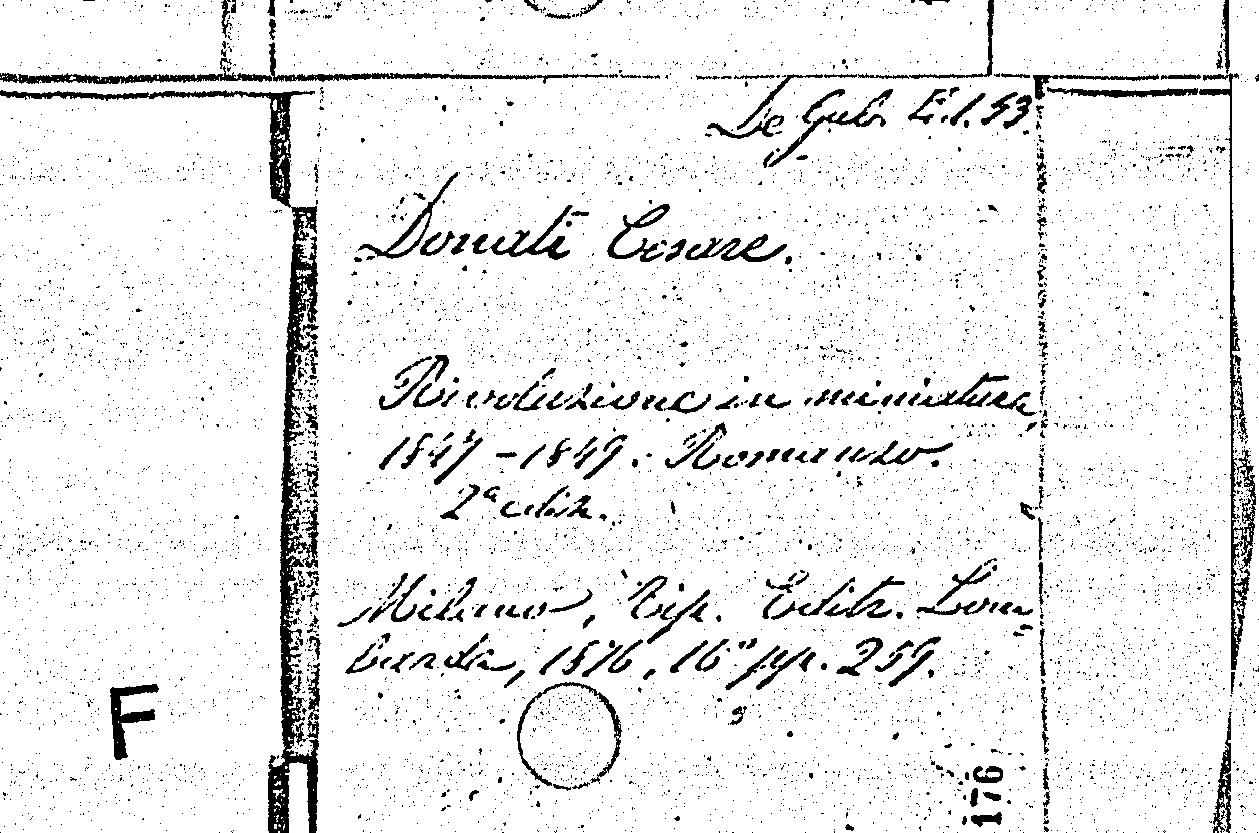 De Gub. Ei.1.53.
Donati Cesare.
Rivoluzione in miniatura
1847-1849. Romanzo.
2ª ediz.
Milano, Tip. Editr. Lom
barda, 1876, 16º pp. 259.
F
176